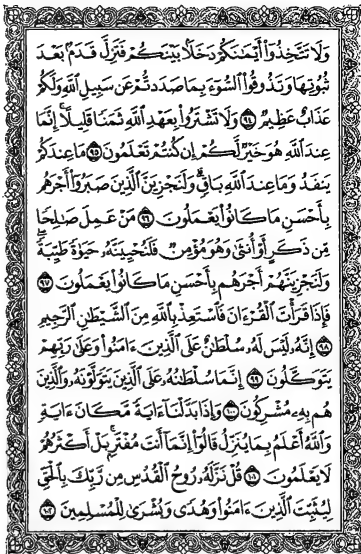 وَلَا تَتَّخِذُوٓا۟ أَيْمَـٰنَكُمْ دَخَلًۢا بَيْنَكُمْ فَتَزِلَّ قَدَمٌۢ بَعْدَ
ثُبُوتِهَا وَتَذُوقُوا۟ ٱلسُّوٓءَ بِمَا صَدَدتُّمْ عَن سَبِيلِ ٱللَّهِ وَلَكُمْ
عَذَابٌ عَظِيمٌ ٩٤ وَلَا تَشْتَرُوا۟ بِعَهْدِ ٱللَّهِ ثَمَنًا قَلِيلًا ۚ إِنَّمَا
عِندَ ٱللَّهِ هُوَ خَيْرٌ لَّكُمْ إِن كُنتُمْ تَعْلَمُونَ ٩٥ مَا عِندَكُمْ
يَنفَدُ وَمَا عِندَ ٱللَّهِ بَاقٍ ۗ وَلَنَجْزِيَنَّ ٱلَّذِينَ صَبَرُوٓا۟ أَجْرَهُم
بِأَحْسَنِ مَا كَانُوا۟ يَعْمَلُونَ ٩٦ مَنْ عَمِلَ صَـٰلِحًا
مِّن ذَكَرٍ أَوْ أُنثَىٰ وَهُوَ مُؤْمِنٌ فَلَنُحْيِيَنَّهُۥ حَيَوٰةً طَيِّبَةً ۖ
وَلَنَجْزِيَنَّهُمْ أَجْرَهُم بِأَحْسَنِ مَا كَانُوا۟ يَعْمَلُونَ ٩٧
فَإِذَا قَرَأْتَ ٱلْقُرْءَانَ فَٱسْتَعِذْ بِٱللَّهِ مِنَ ٱلشَّيْطَـٰنِ ٱلرَّجِيمِ
٩٨ إِنَّهُۥ لَيْسَ لَهُۥ سُلْطَـٰنٌ عَلَى ٱلَّذِينَ ءَامَنُوا۟ وَعَلَىٰ رَبِّهِمْ
يَتَوَكَّلُونَ ٩٩ إِنَّمَا سُلْطَـٰنُهُۥ عَلَى ٱلَّذِينَ يَتَوَلَّوْنَهُۥ وَٱلَّذِينَ
هُم بِهِۦ مُشْرِكُونَ ١٠٠ وَإِذَا بَدَّلْنَآ ءَايَةً مَّكَانَ ءَايَةٍ ۙ
وَٱللَّهُ أَعْلَمُ بِمَا يُنَزِّلُ قَالُوٓا۟ إِنَّمَآ أَنتَ مُفْتَرٍۭ ۚ بَلْ أَكْثَرُهُمْ
لَا يَعْلَمُونَ ١٠١ قُلْ نَزَّلَهُۥ رُوحُ ٱلْقُدُسِ مِن رَّبِّكَ بِٱلْحَقِّ
لِيُثَبِّتَ ٱلَّذِينَ ءَامَنُوا۟ وَهُدًى وَبُشْرَىٰ لِلْمُسْلِمِينَ ١٠٢